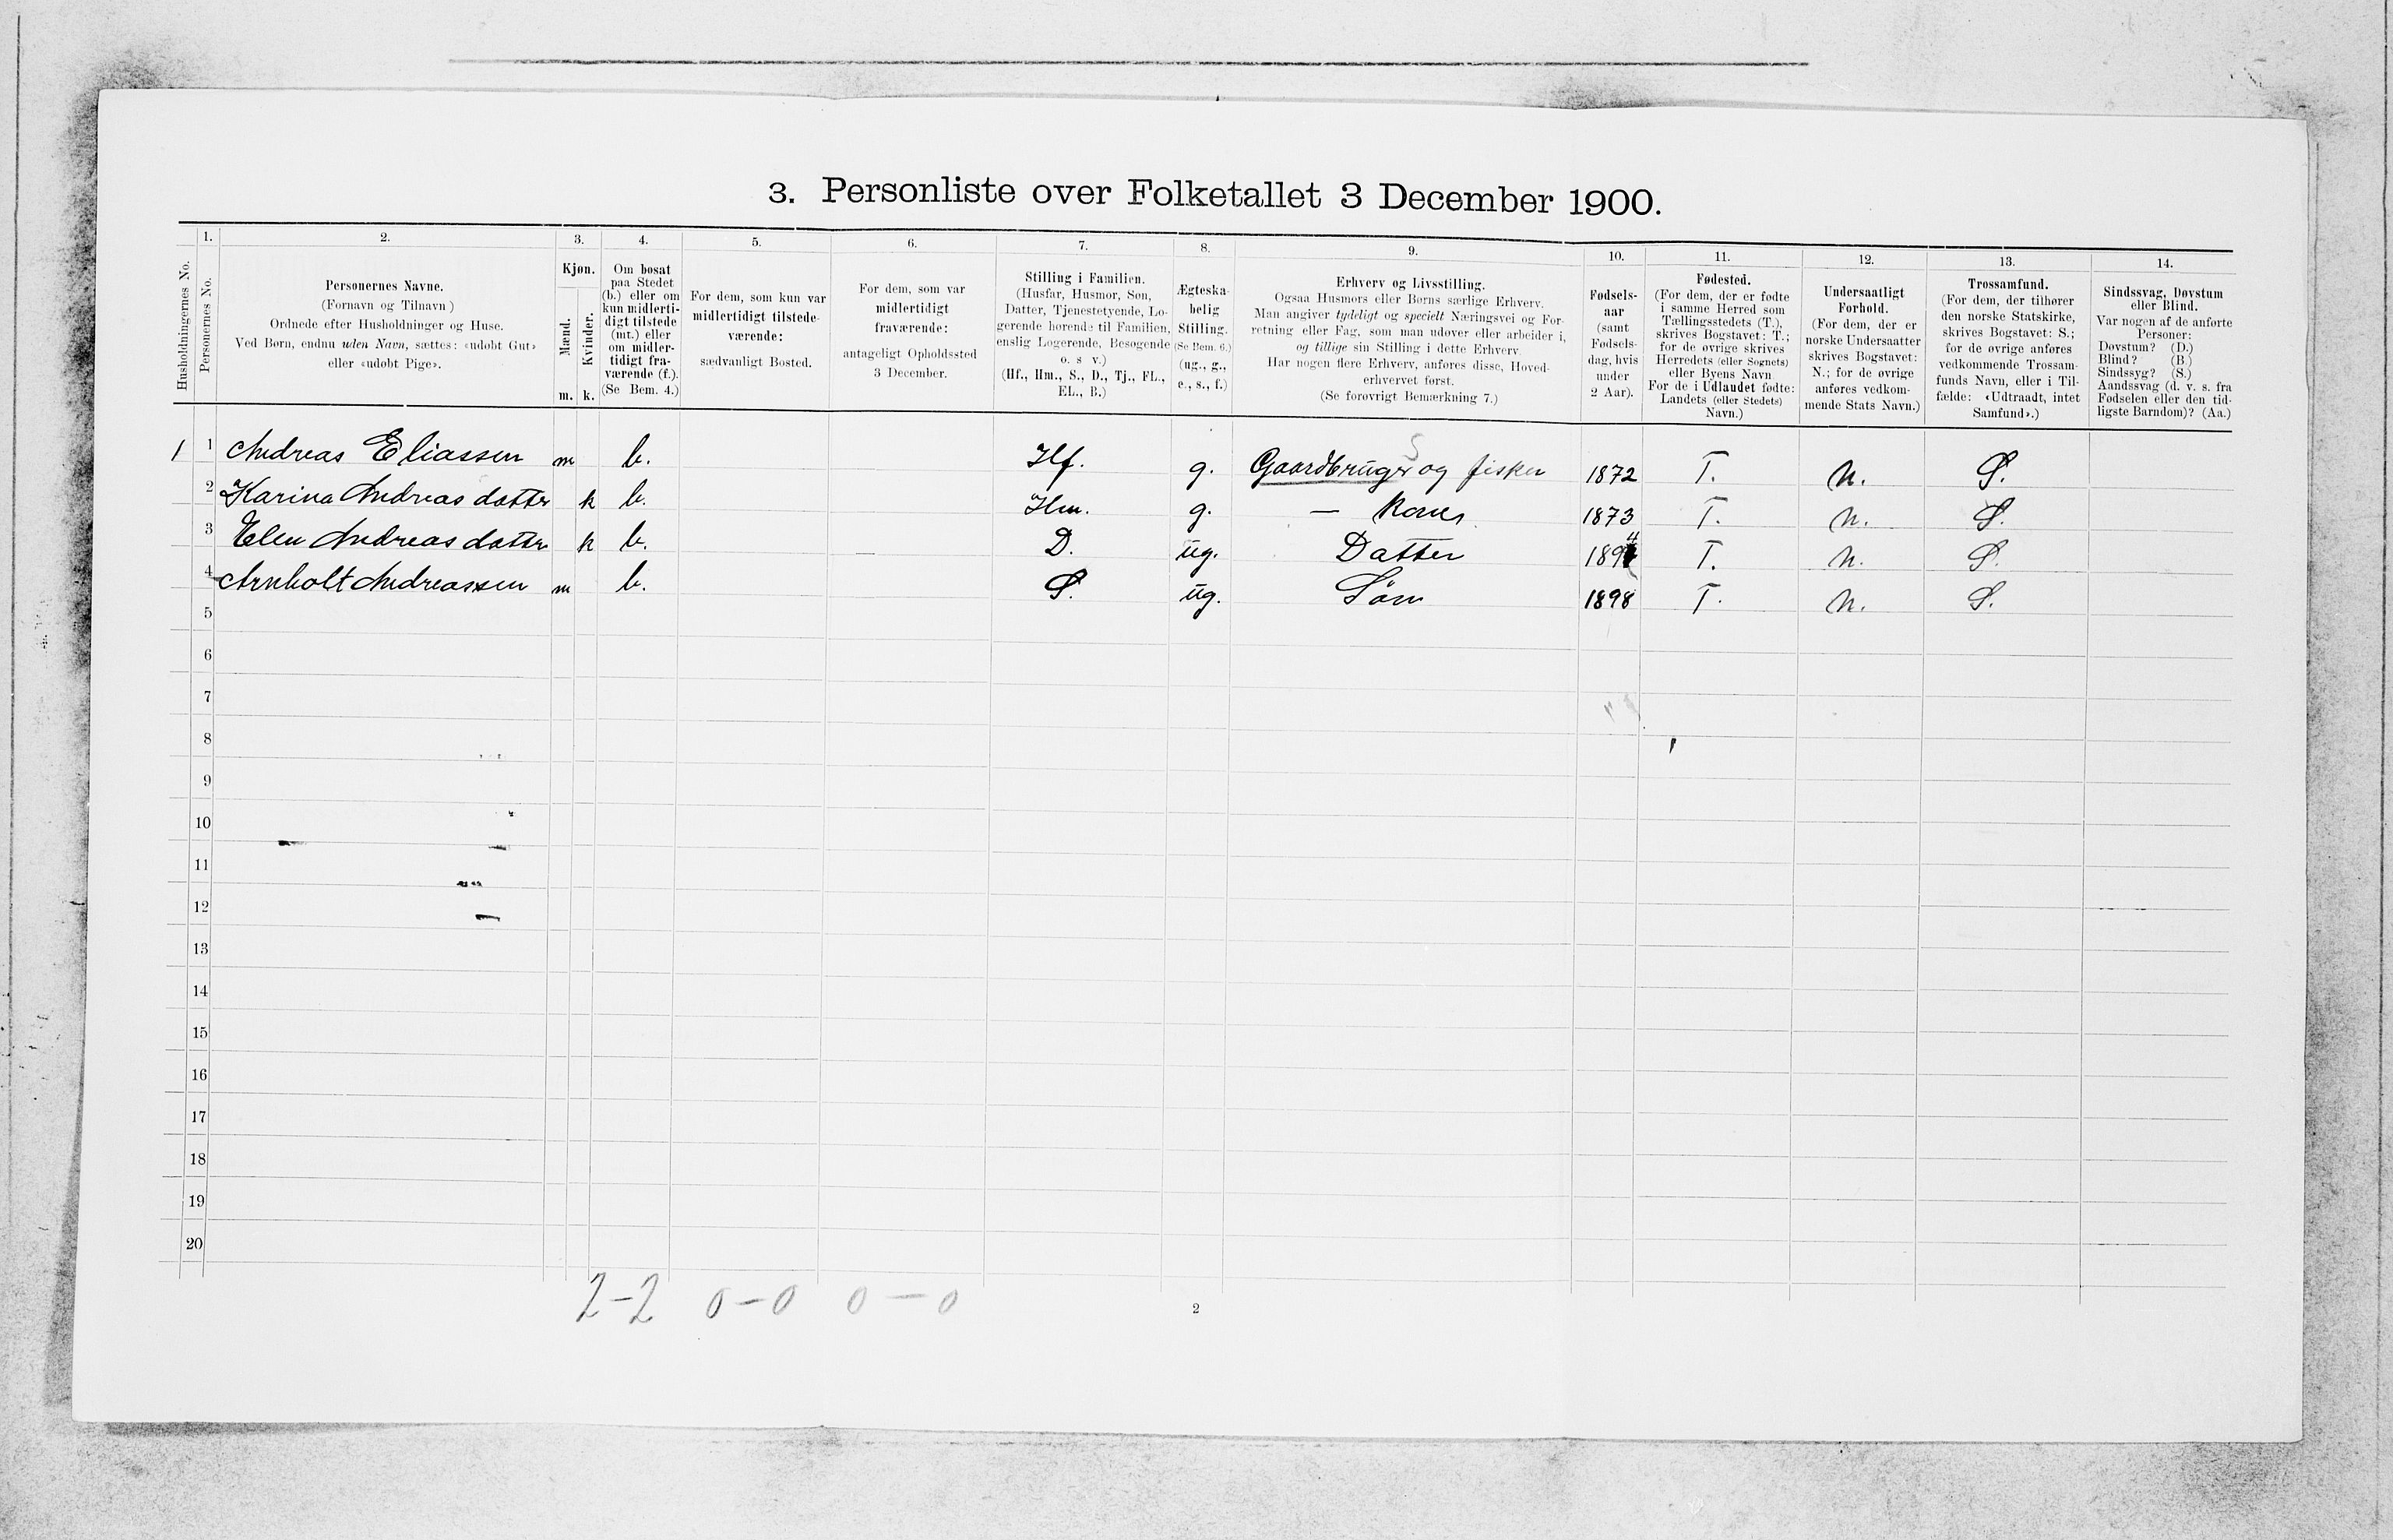 3. Personliste over Folketallet 3 December 1900.
Husholdningernes No.
1.
Personernes No.
2.
Personernes Navne.
(Fornavn og Tilnavn)
Ordnede efter Husholdninger og Huse.
Ved Børn, endnu uden Navn, sættes: «udøbt Gut»
eller «udøbt Pige».
3.
Kjøn.
Mænd.
m.
Kvinder.
k.
4.
Om bosat
paa Stedet
(b.) eller om
kun midlerti-
digt tilstede
(mt.) eller
om midler-
tidigt fra-
værende (f.).
(Se Bem. 4.)
5.
For dem, som kun var
midlertidigt tilstede-
værende:
sædvanligt Bosted.
6.
For dem, som var
midlertidigt
fraværende:
antageligt Opholdssted
3 December.
7.
Stilling i Familien.
(Husfar, Husmor, Søn,
Datter, Tjenestetyende, Lo-
gerende hørende til Familien,
enslig Logerende, Besøgende
o. s v.)
(Hf., Hm., S., D., Tj., FL.,
EL., B.)
8.
Ægteska-
belig
Stilling.
(Se Bem. 6.)
(ug., g.,
e., s., f.)
9.
Erhverv og Livsstilling.
Ogsaa Husmors eller Børns særlige Erhverv.
Man angiver tydeligt og specielt Næringsvei og For-
retning eller Fag, som man udøver eller arbeider i,
og tillige sin Stilling i dette Erhverv.
Har nogen flere Erhverv, anføres disse, Hoved-
erhvervet først.
(Se forøvrigt Bemærkning 7.)
10.
Fødsels-
aar
(samt
Fødsels-
dag, hvis
under
2 Aar).
11.
Fødested.
(For dem, der er fødte
i samme Herred som
Tællingsstedets (T.),
skrives Bogstavet: T.;
for de øvrige skrives
Herredets (eller Sognets)
eller Byens Navn
For de i Udlandet fødte:
Landets (eller Stedets)
Navn.)
12.
Undersaatligt
Forhold.
(For dem, der er
norske Undersaatter
skrives Bogstavet:
N.; for de øvrige
anføres vedkom-
mende Stats Navn.)
13.
Trossamfund.
(For dem, der tilhører
den norske Statskirke,
skrives Bogstavet: S.;
for de øvrige anføres
vedkommende Trossam-
funds Navn, eller i Til-
fælde: «Udtraadt, intet
Samfund».)
14.
Sindssvag, Døvstum
eller Blind.
Var nogen af de anførte
Personer:
Døvstum? (D.)
Blind? (B.)
Sindssyg? (S.)
Aandssvag (d. v. s. fra
Fødselen eller den tid-
ligste Barndom)? (Aa.)
1 1 Andreas Eliassen m b. Hf. g. Gaardbruger og fisker 1872 T. N. S.
2 Karina Andreas datter k b. Hm. g. — Kone 1873 T. N. S.
3 Elen Andreas datter k b. D. ug. Datter 1894 T. N. S.
4 Arnholt Andreassen m b. S. ug. Søn 1898 T. N. S.
5
6
7
8
9
10
11
12
13
14
15
16
17
18
19
20
2-2 0-0 0-0
2